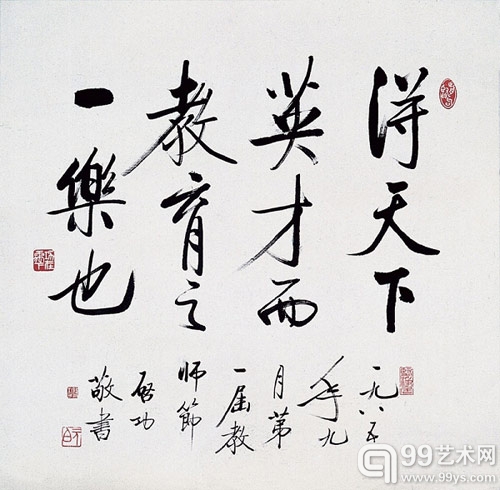 得天下
英才而
教育之
一樂也
一九八五
年九
月第
一届教
师節
啓功
敬書
99艺术网
www.99ys.com